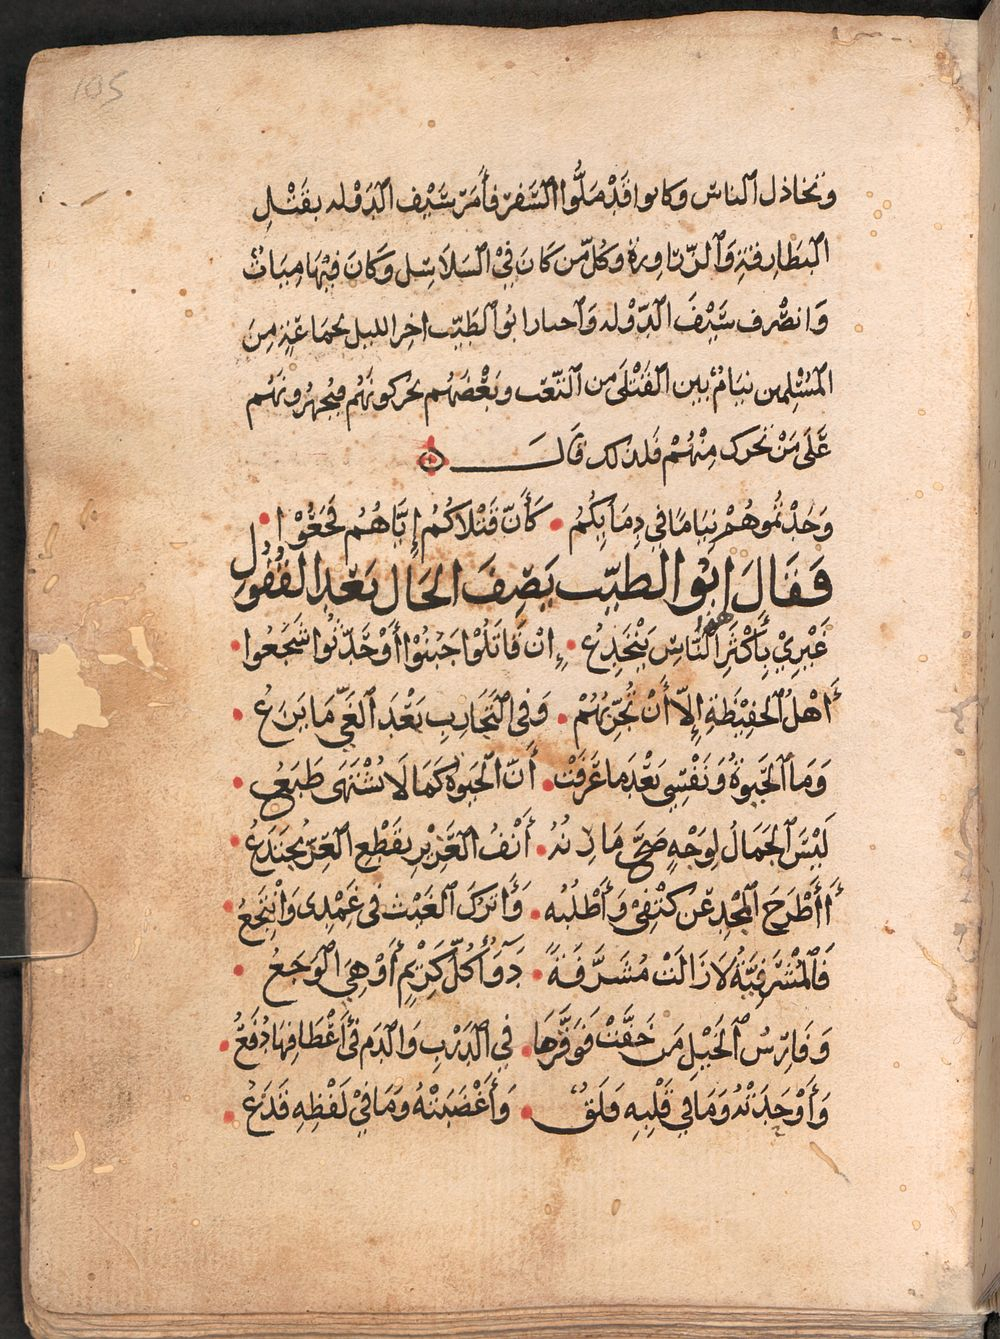 105
وتخاذل الناس وكانوا قد ملّوا السّفر فأمر سَيْف الدولة بقتل
البطارقة والزراورة وكلّ من كان في السلاسل وكان فيها مِيَات
وانصرف سيف الدولة واجتاز ابو الطيّب اخر الليل بجماعةٍ من
المُسْلمين نيامٌ بين القتلى من التعب وبعضهم يحركونهم فيجهزونهم
على من تحرك منهم فلذلك قال
وَجَدْتُموهُمْ نِيَامًا فِي دِمَائِكُمْ • كَأَنَّ قَتْلَاكُمُ إِيَّاهُمُ فَجَعُوْا •
فَقَالَ ابُو الطيّب يَصِفَ الحَال بَعْد القُفُول
غَيْرِيْ بِأَكْثَرِ هٰذا النَّاسِ يَنْخَدِعُ • إِنْ قَاتَلُوْا جَبَنُوْا أَوْ حَدَّثُوا شَجَعُوا •
أَهْلُ الحَفِيْظَةِ إِلّا أَنْ تُجَرِّبَهُمْ • وَفِي التَّجَارِبِ بَعْدَ الغَيّ مَا يَزَعُ •
وَمَا الحَيوةُ وَنَفْسِي بَعْدَ مَا عَرَفَتْ • أَنّ الحَيوةَ كَمَا لَا تُشْتَهَى طَبَعُ •
لَيْسَ الجَمَالُ لِوَجْهٍ صَحَّ مَارِنُهُ • أَنْفُ العَزِيْزِ بِقَطْعِ العِزِّ يُجْتَدَعُ •
أَأَطْرَحَ المَجْدَ عَن كَتْفِيْ وَأَطْلُبُه • وَأَتْرُكَ الغَيْثَ فِي غِمْدِي وَانْتَجِعُ •
فَالمَشْرَفِيَّةُ لَا زَالَتْ مُشَرَّفَةً • دَوَآءُ كُلّ كَرِيْمٍ أَوْ هِيَ الوَجَعُ •
وَفَارِسُ الخَيْلِ مَن خَفَّتْ فَوَقَّرَهَا • فِي الدَرْبِ وَالدَم فيْ أَعْطَافِهَا دُفَعُ •
وَأَوْحَدَتْهُ وَمَا فِي قَلْبِهِ قَلَقٌ • وَأَغْضَبَتْهُ وَمَا فِيْ لَفْظِهِ قَذَعُ •